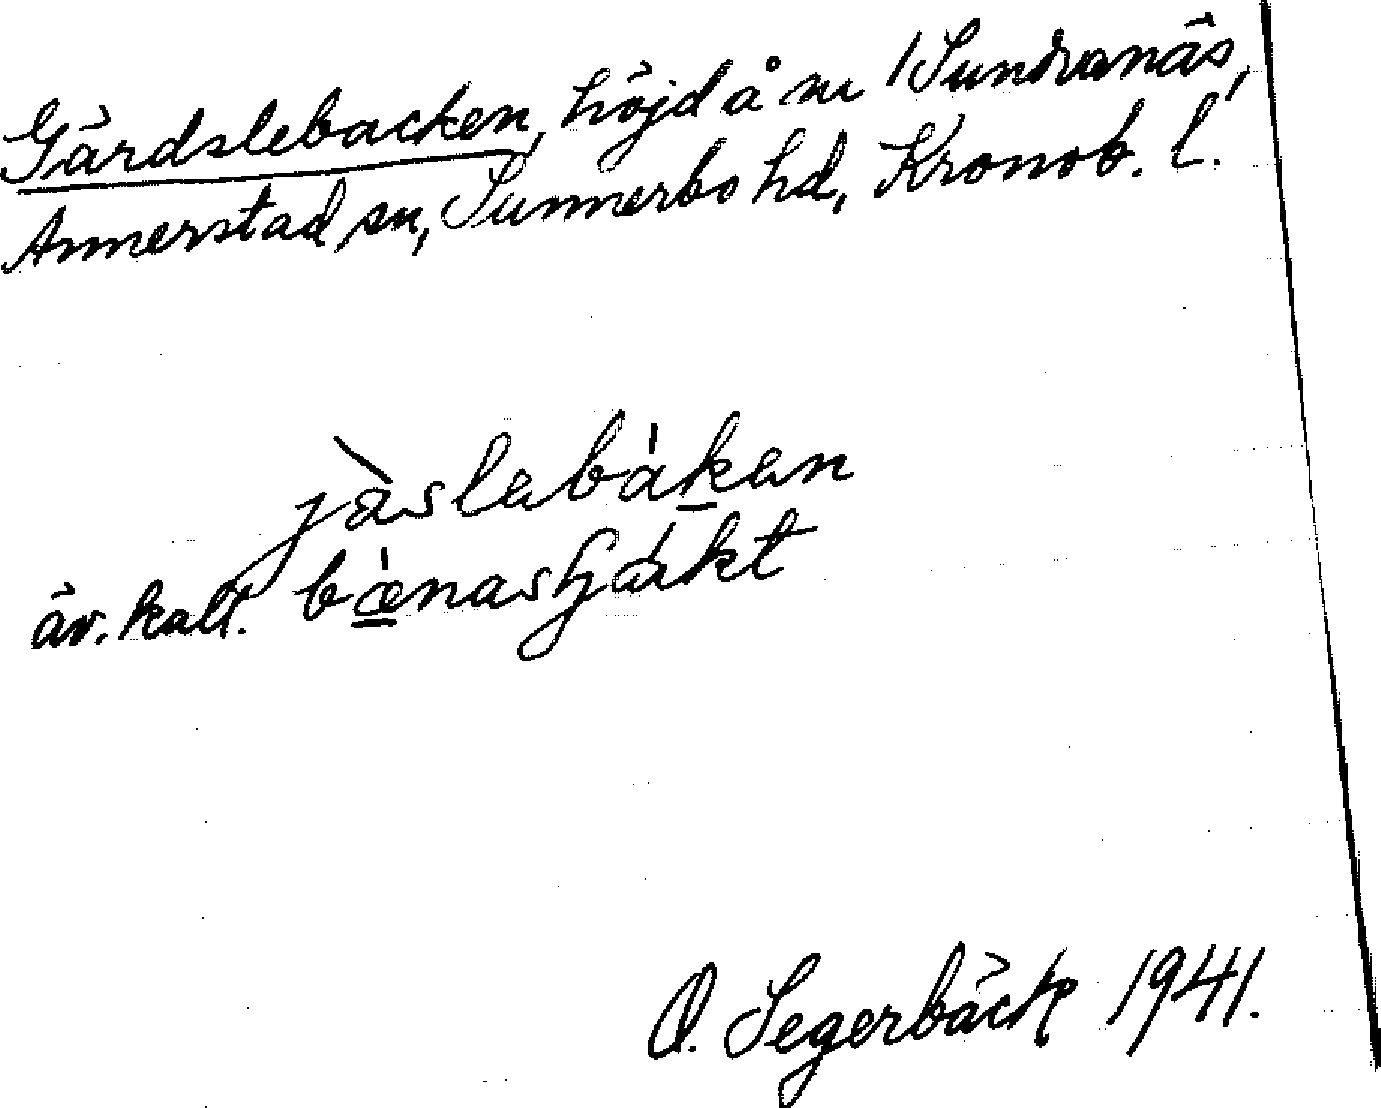 Gärdslebacken, höjd å nr 1 Sundranäs,
Annerstad sn, Sunnerbo hd, Kronob. l.
jàslabákan
äv. kall.
O. Segerbäck 1941.